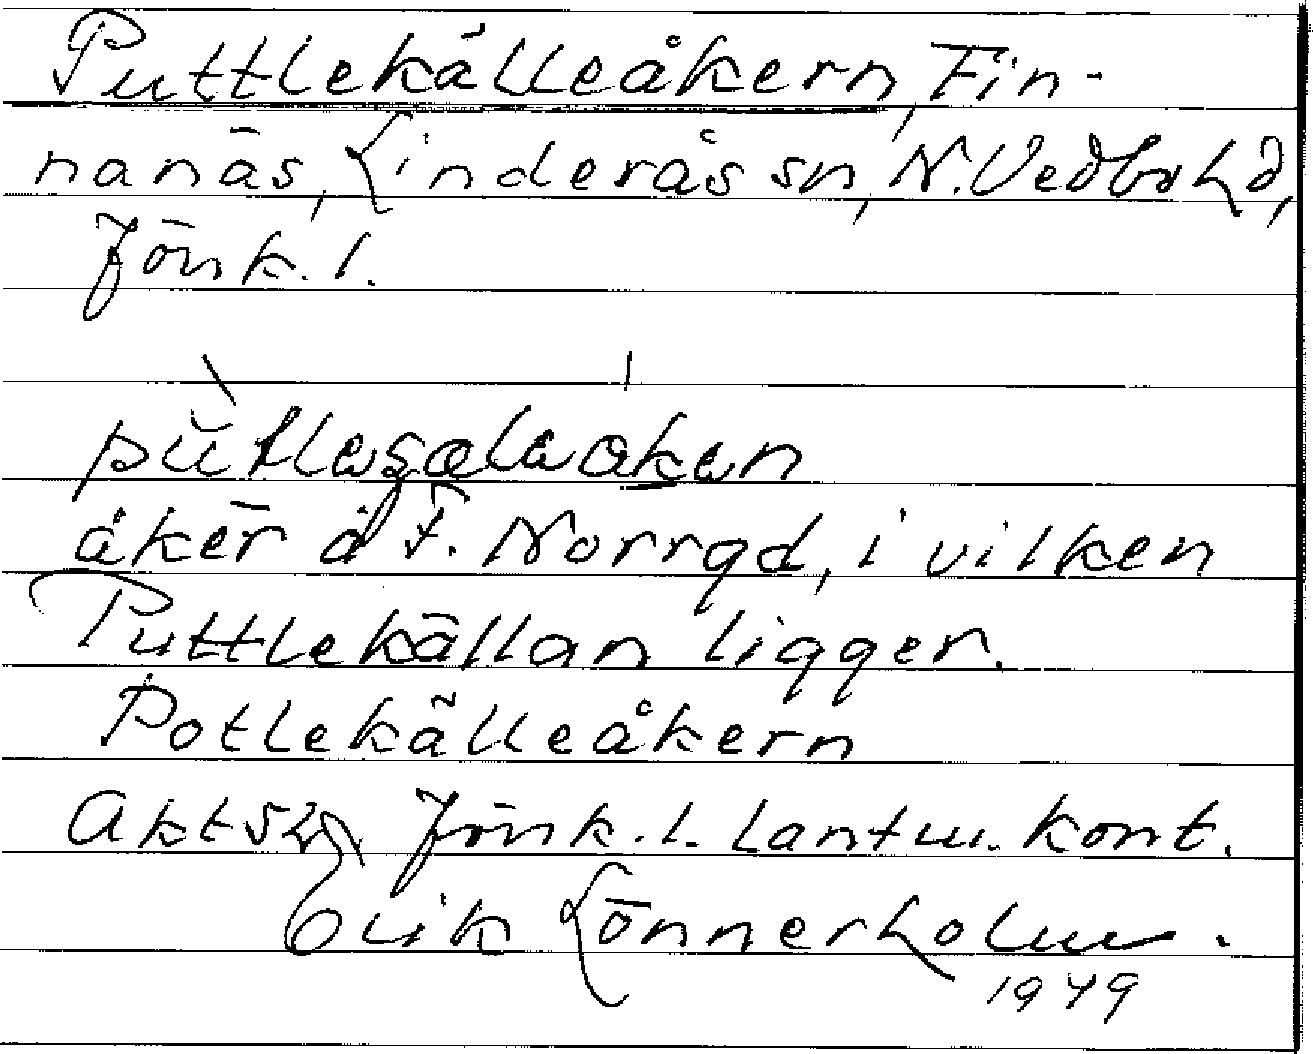 Puttlekälleåkern, Fin-
nanäs, Linderås sn, N. Vedbo hd,
Jönk. l.
åker å F. Norrgd, i vilken
Puttlekällan ligger.
Potlekälleåkern
Akt Jönk. l. lantm. kont.
Erik Lönnerholm.
1949